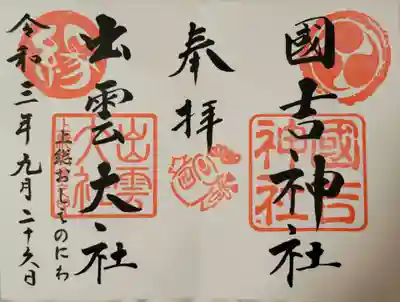 國吉神社
奉拝
出雲大社
上総お
のにわ
令和三年九月二十六日
國吉
神社
出雲
大社
縁